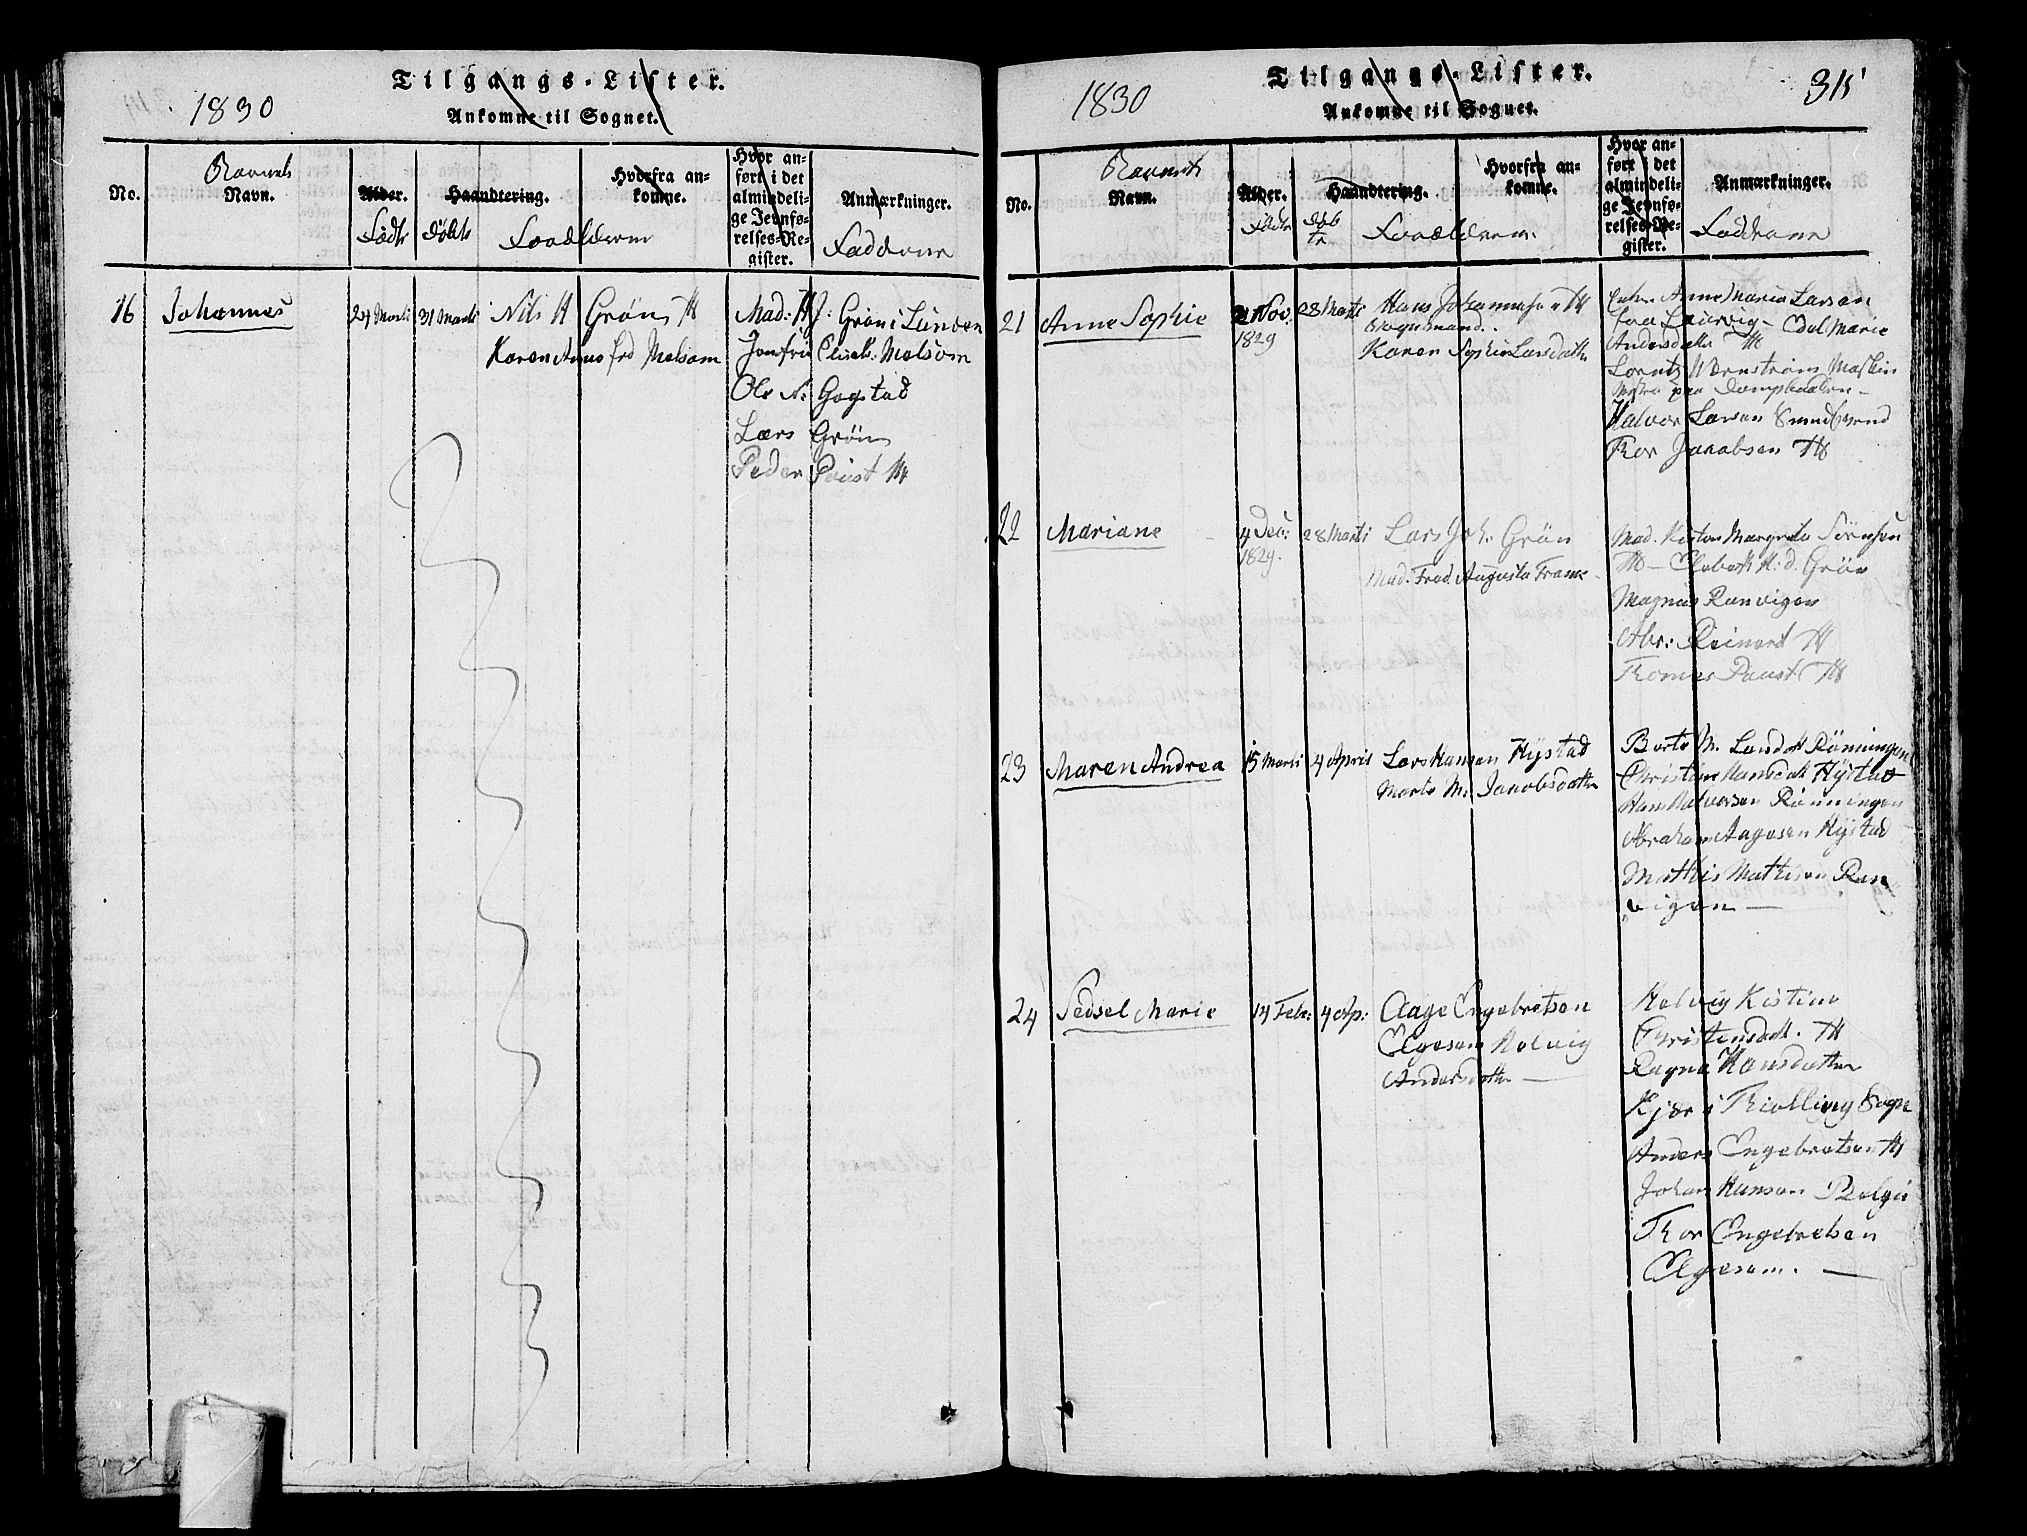 Tilgangs-Lister.
1830
Ankomne til Sognet.
No.
Barnets
Navn.
Alder.
Födt
döbt
Haandtering.
Forældrene
Hvorfra an-
komne.
Hvor an-
ført i det
almindeli-
ge Jevnfø-
relses-Re-
gister.
Anmærkninger.
Faddrene
16 Johannes 24 Marti 31 Marti Nils H Grøn Th Mad: H J. Grøn i Lunden
Karen Anne fød Melsom Jomfru Elisab: Melsom
Ole N: Gogstad
Lars Grøn
Peder Paust Th
Tilgangs-Lister.
1830
315
Ankomne til Sognet.
No.
Barnets
Navn.
Alder.
Födt
döb
te
Haandtering.
Forældrene
Hvorfra an-
komne.
Hvor an-
ført i det
almindeli-
ge Jevnfø-
relses-Re-
gister.
Anmærkninger.
Faddrene
21 Anne Sophie 21 Nov: 28 Marti Hans Johannesen Th
1829
Karen Sophie Larsdatter
Enke Anne Maria Larsen
fra Laurvig - Edel Marie
Andersdatter Th
Lorentz Wenström Maskin
Mester paa Dampbaaden -
Halvor Larsen Smedsrød
Thor Jacobsen Th
22 Mariane 4 Dec: 28 Marti Lars Joh: Grøn
1829.
Mad. Fred. Augusta Frank
Mad. Kisten Margrete Sörensen
Th - Elsbeth H: d. Grön
Magnus Ranvigen
Abr: Reinert Th
Thomas Paust Th
23 Maren Andrea 15 Marti 4 April Lars Hansen Hystad
Marte M: Jacobsdatter
Berte M. Larsdatt Rønningen
Christine Hansdatt Hystad
Hans Halvorsen Rønningen
Abraham Aagesen Hystad
Mathis Mathisen Ran
vigen -
24 Sedsel Marie 14 Febr: 4 Ap: Aage Engebretsen
Elgesem Helvig
Andersdatter -
Helvig Kistine
Christensdatt. Th
Ragna Hansdatter
Kjær i Thiølling Sogn
Anders Engebretsen Th
Johan Hansen
Thor Engebretsen
Elgesem. -